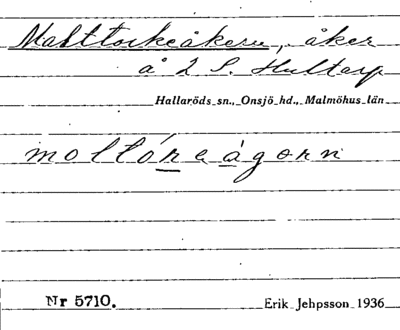 Malttorkeåkern, åker
å 2 S. Hultarp
Hallaröds sn., Onsjö hd., Malmöhus län
moltórɛågorn
Nr 5710.
Erik Jehpsson 1936